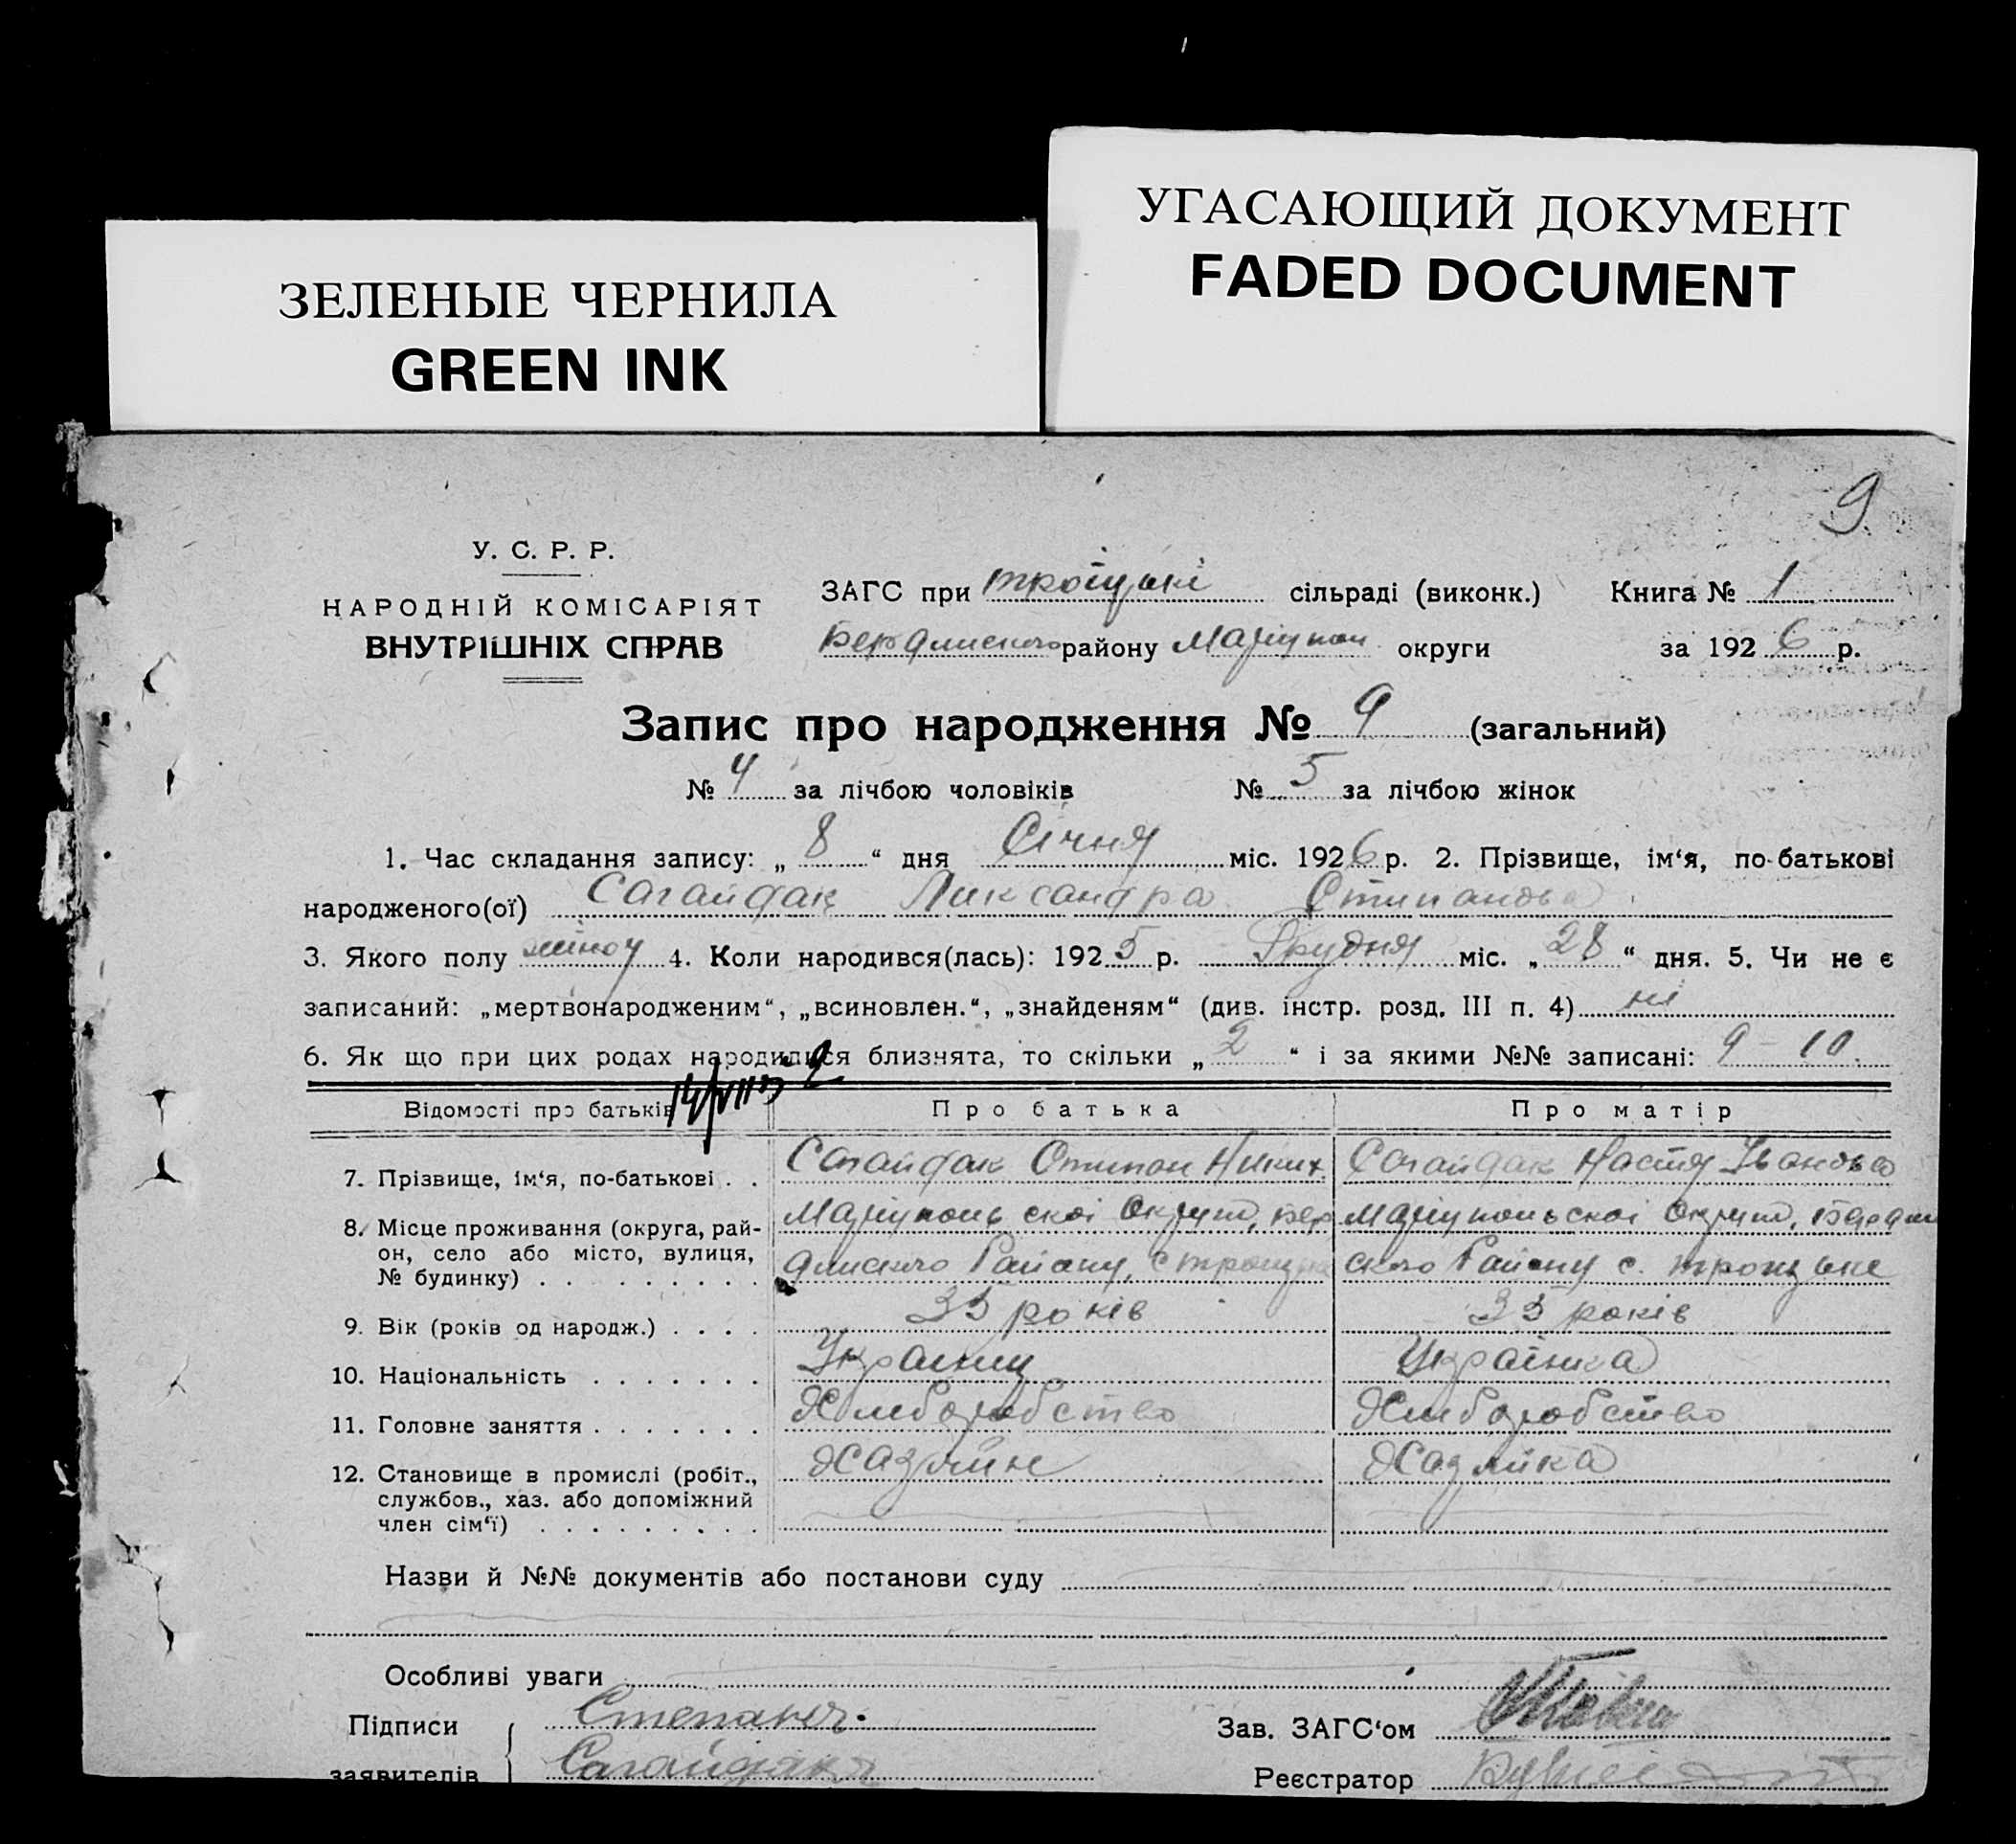 УГАСАЮЩИЙ ДОКУМЕНТ
FADED DOCUMENT
ЗЕЛЕНЫЕ ЧЕРНИЛА
GREEN INK
9
У. С. Р. Р.
НАРОДНІЙ КОМІСАРІЯТ
ВНУТРІШНІХ СПРАВ
ЗАГС при троїцькі сільраді (виконк.) Книга № 1
Бердянского району Маріупол округи за 1926 р.
Запис про народження № 9 (загальний)
№ 4 за лічбою чоловіків № 5 за лічбою жінок
1. Час складання запису: „ 8 “ дня Січня міс. 1926 р. 2. Прізвище, ім‘я, по-батькові
народженого(ої) Сагайдак Ликсандра Стипановна
3. Якого полу жіноч 4. Коли народився(лась): 1925 р. Грудня міс. „ 28 “ дня. 5. Чи не є
записаний: „мертвонародженим“, „всиновлен.“, „знайденям“ (див. інстр. розд. III п. 4) ні
6. Як що при цих родах народилися близнята, то скільки „ 2 “ і за якими №№ записані: 9 – 10.
Відомості про батьків Про батька Про матір
7. Прізвище, ім‘я, по-батькові . . Сагайдак Стипан Никит. Сагайдак Настя Івановна
8. Місце проживання (округа, рай-
он, село або місто, вулиця,
№ будинку) . . . . . . . . .
Маріупольскої Округи, Бер
дянского Району, с троицьке
Маріупольскої Округи, Бердян
ского Району с. троицьке
9. Вік (років од народж.) . . . . 35 років 35 років
10. Національність . . . . . . . Українц Українка
11. Головне заняття . . . . . . . Хлиборобство Хлиборобство
12. Становище в промислі (робіт.,
службов., хаз. або допоміжний
член сім‘ї) . . . . . . . . .
Хазяин Хазяйка
Назви й №№ документів або постанови суду
Особливі уваги
Підписи Степанъ Зав. ЗАГС‘ом
заявителів Сагайдакъ Реєстратор